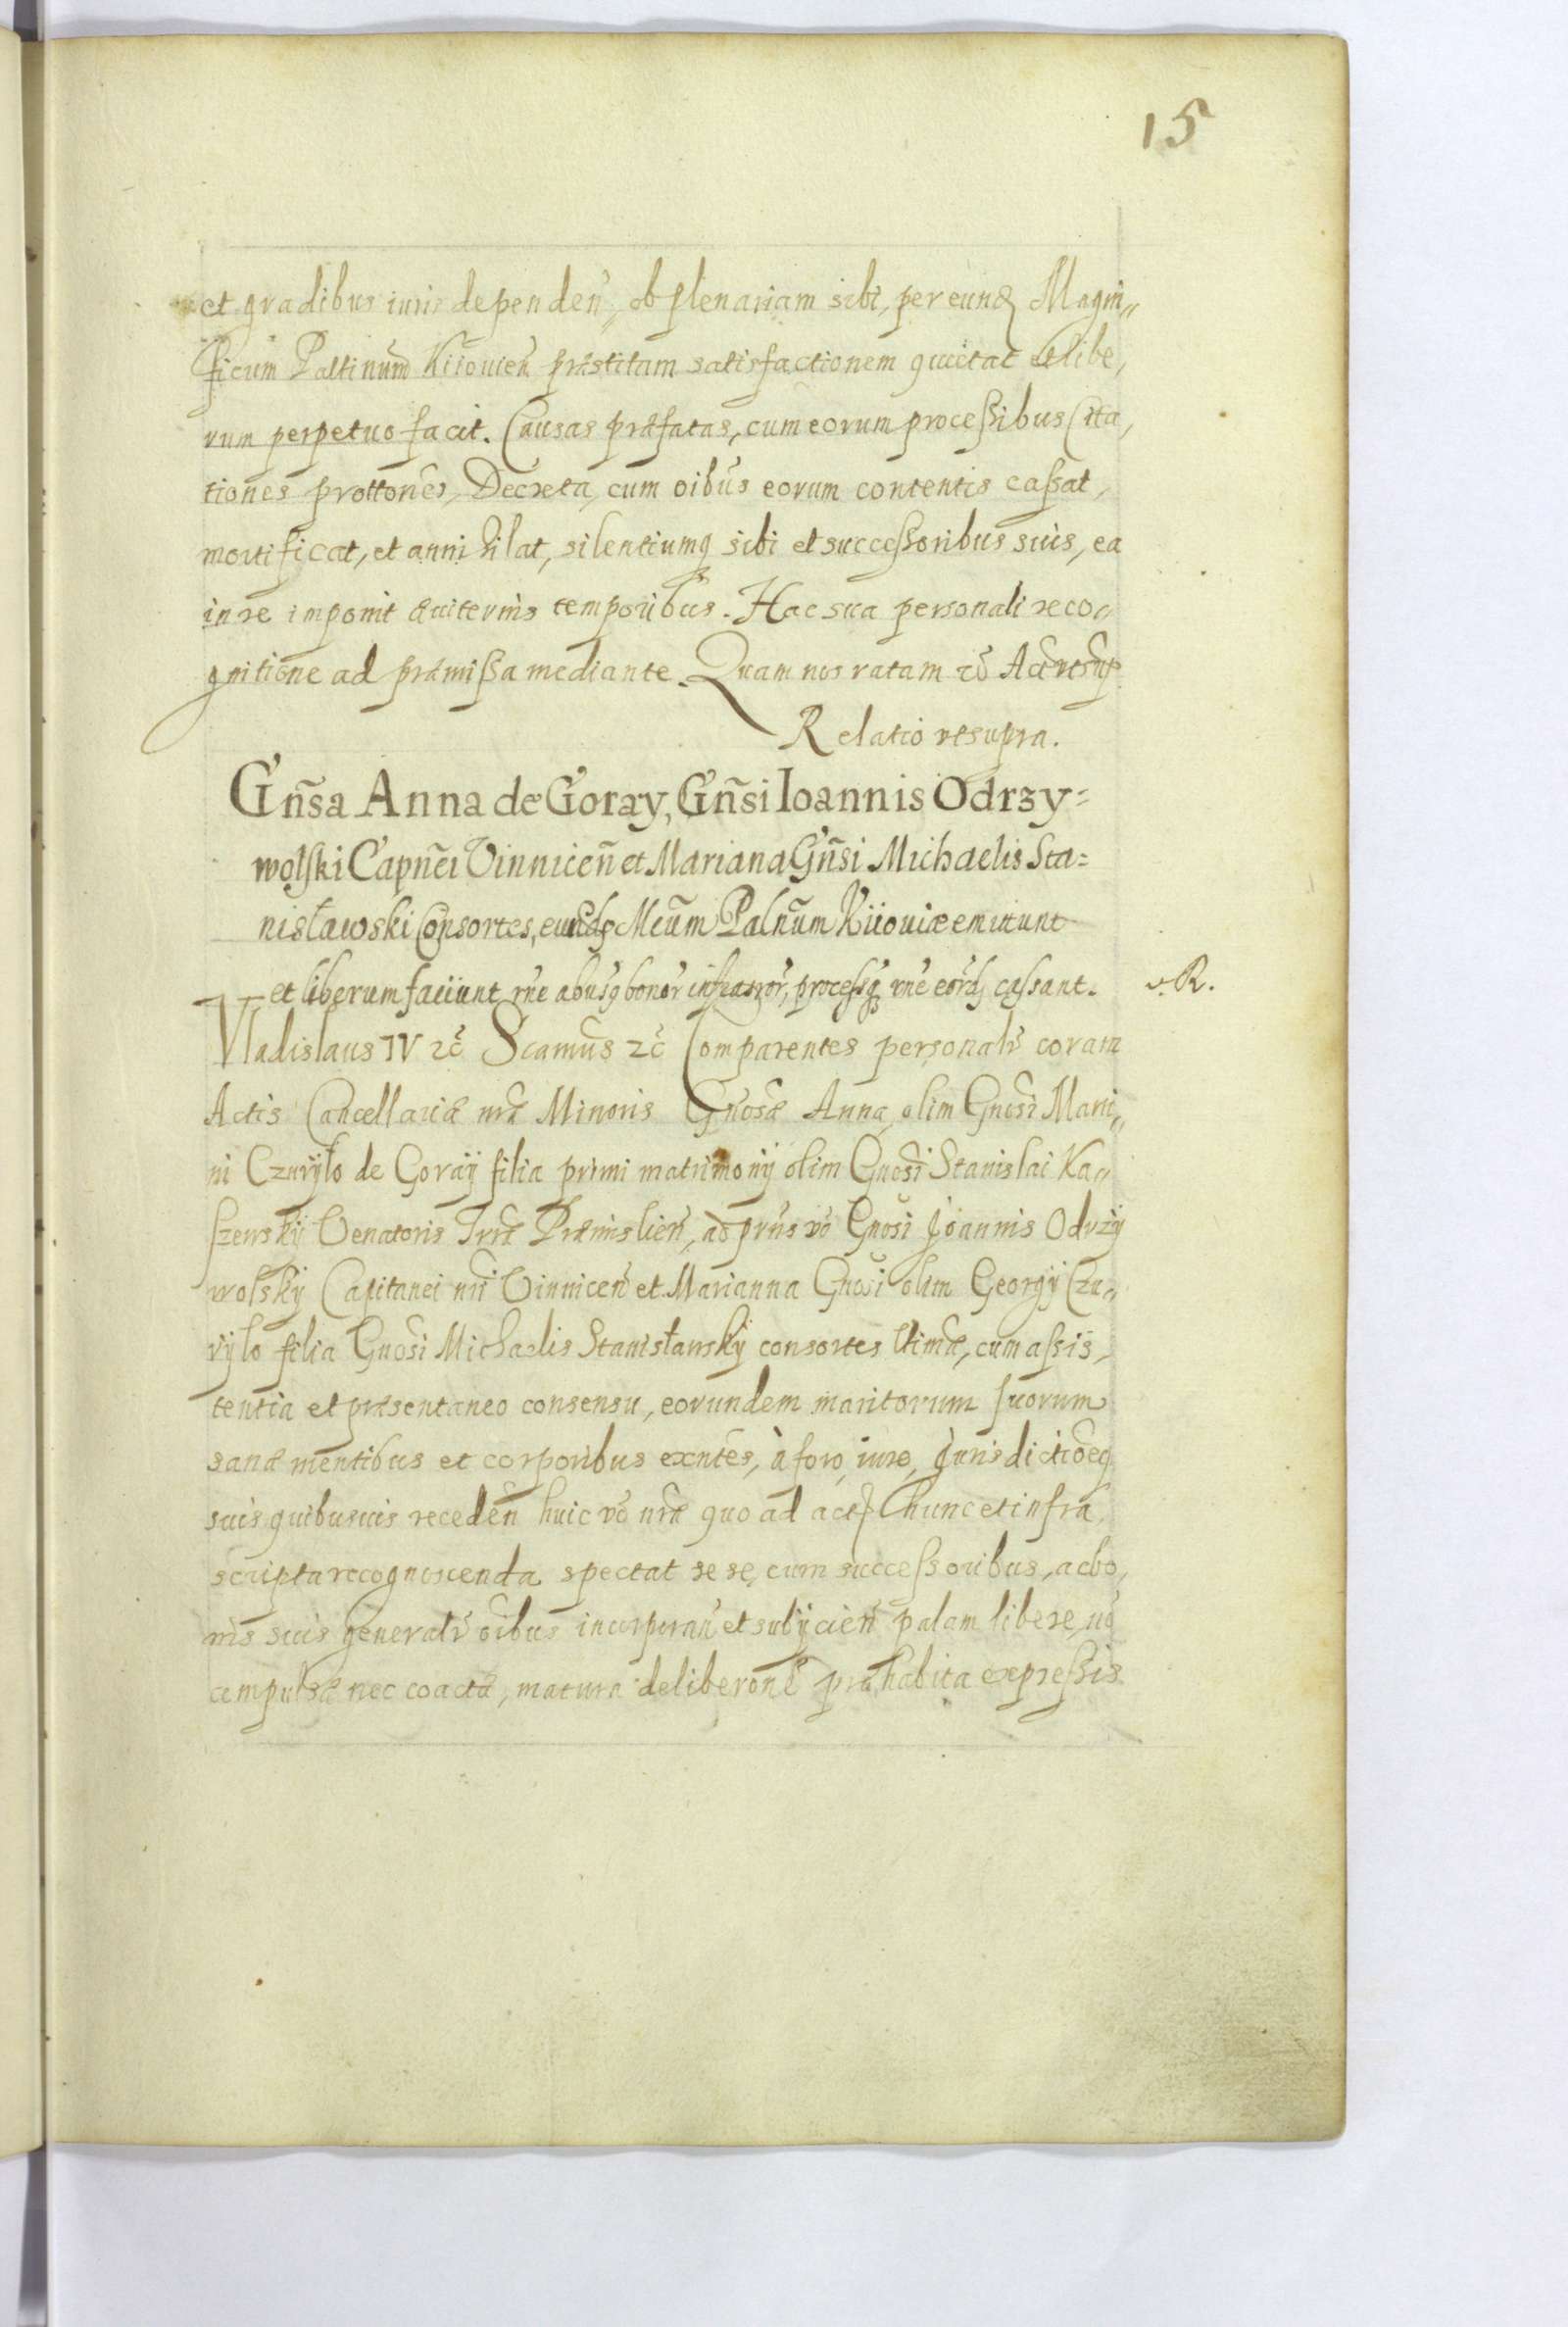 15
et gradibus iuris dependen̄, ob plenariam sibi, per eund Magni„
ficum Paltinum Kiiouien̄ præstitam satisfactionem quietat et libe,
rum perpetuo facit. Causas præfatas, cum eorum processibus Cita,
tiones prottones, Decreta, cum oibus eorum contentis cassat,
mortificat, et annihilat, silentiumq sibi et successoribus suis, ea
in re imponit æuiternis temporibus. Hac sua personali reco„
gnitione ad præmissa mediante. Quam nos ratam
Relatio ut supra.
Gñsa Anna de Goray, Gñsi Ioannis Odrzy=
wolski Capnei Vinniceñ et Mariana Gñsi Michaelis Sta=
nisławski Consortes, eund Mcum Palnum Kiiouiæ emittunt
et liberum faciunt rne abusq bonor infrascr, processq rne eord cassant.
v. R.
Vladislaus IV zc̃ Scamus zc̃ Comparentes personalr coram
Actis Cancellariæ nræ Minoris Gnosæ Anna, olim Gnosi Marti„
ni Czuryło de Goraÿ filia primi matrimonij olim Gnosi Stanislai Ka„
szewskÿ Venatoris Trræ Præmislien̄, ad prns vo Gnosi Joannis Odrzÿ
wolskÿ Capitanei nri Vinnicen̄ et Marianna Gnosi olim Georgÿ Czu„
ryło filia Gnosi Michaelis Stanisławskÿ consortes ltimæ, cum assis,
tentia et præsentaneo consensu, eorundem maritorum suorum
sanæ mentibus et corporibus exntes, à foro, iure, Jurisdictioneq
suis quibusuis receden̄ huic vo nræ quo ad actum hunc et infra
scripta recognoscenda spectat se se, cum successoribus, ac bo,
nis suis generalr oibus incorporan̄ et subÿcien̄ palam libere, no
compulsæ nec coactæ, matura deliberone præhabita expressis